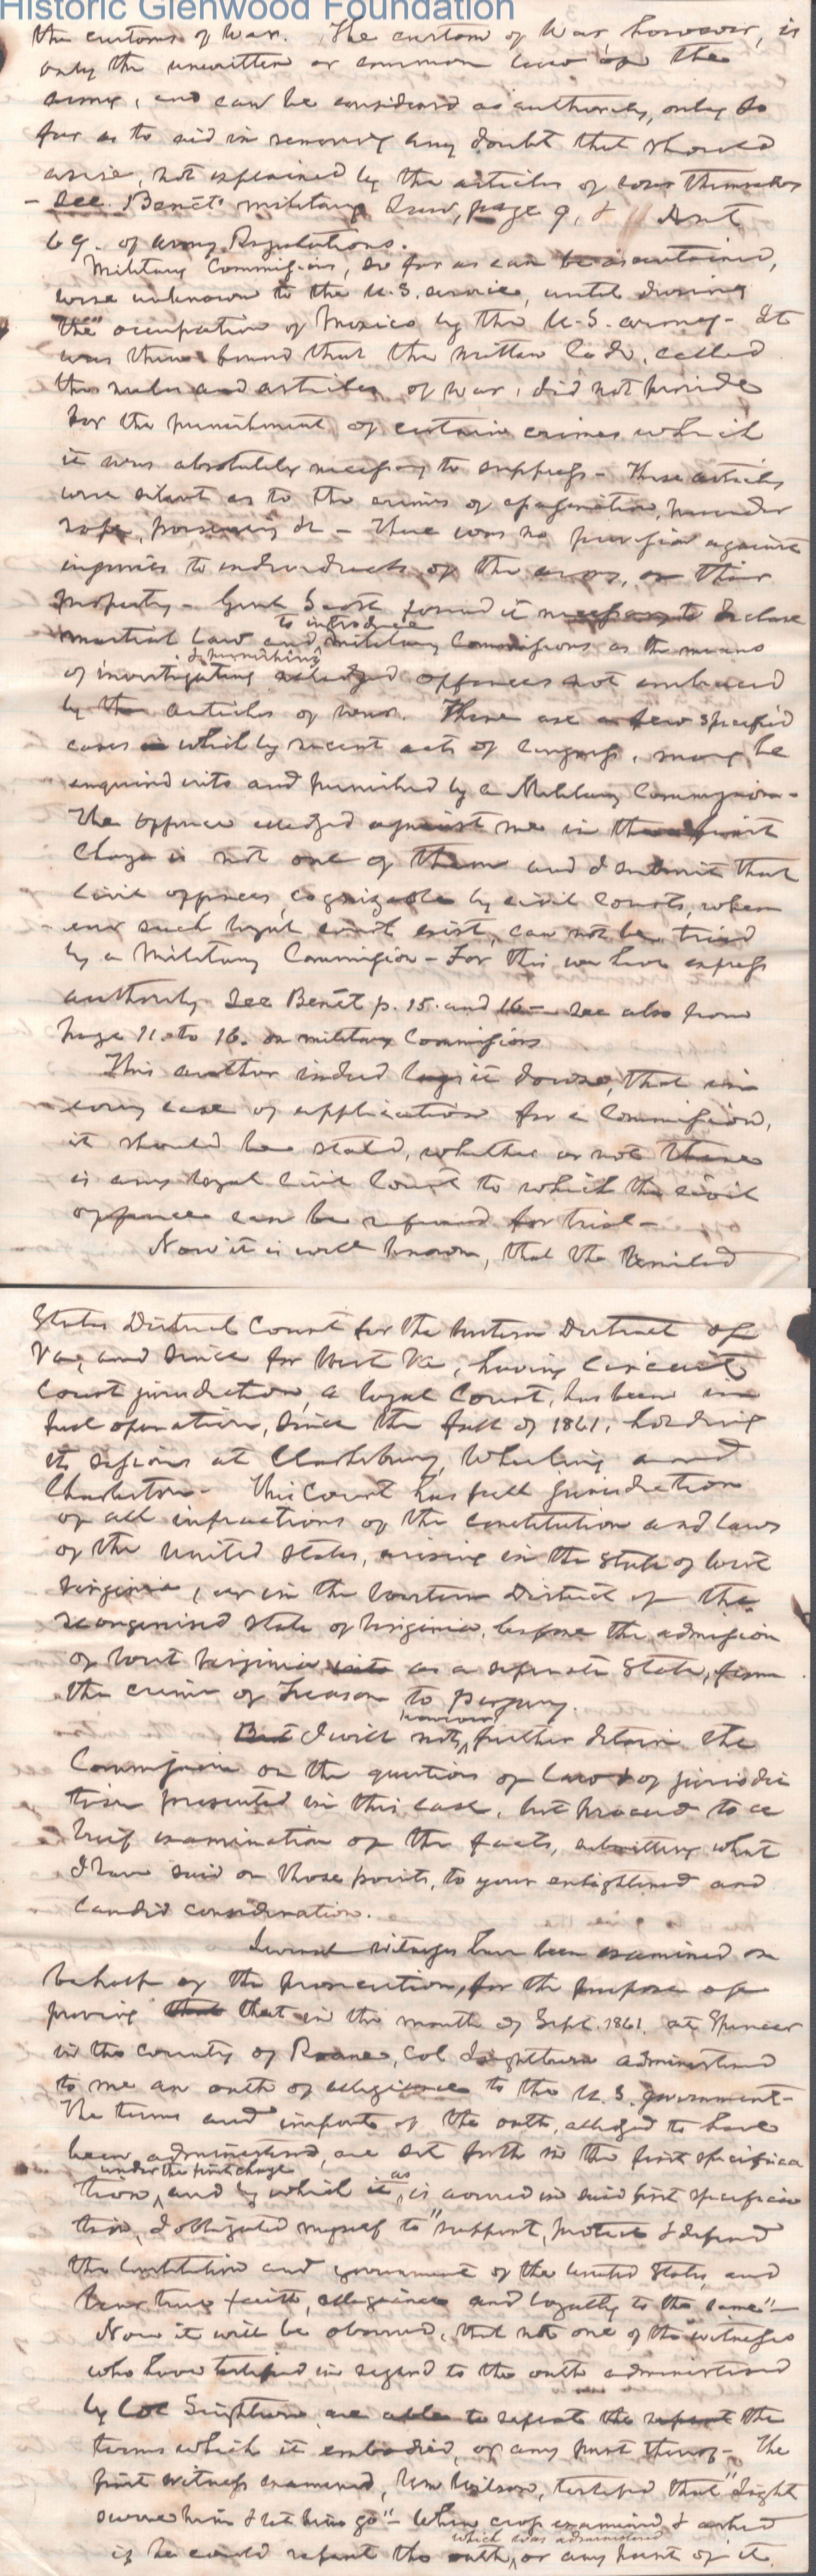 Historic Glenwood Foundation
the customs of war. The custom of War, however, is
only the unwritten or common law of the
army, and can be considered as authority, only so
far as to aid in removing any doubt that should
arise, not explained by the articles of war themselves
- See Benét's military Law, page 9, & 11 Art
69. of Army Regulations.
Military Commissions, so far as can be ascertained,
were unknown to the U.S. service, until during
the occupation of Mexico by the U.S. army - It
was then found that the written Code, called
the rules and articles of war, did not provide
for the punishment of certain crimes which
it was absolutely necessary to suppress - These articles
were silent as to the crimes of assassination, murder
rape, poisoning &c - There was no provision against
injuries to individuals of the army, or their
property - Genl Scott found it necessary to declare
to introduce
martial law and military Commissions as the means
& punishing
of investigating alledged offences not embraced
by the articles of war. There are a few specified
cases in which by recent acts of Congress, may be
enquired into and punished by a Military Commission -
The offence alledged against me in the first
Charge is not one of them and I submit that
civil offences, cognizable by civil Courts, when
ever such legal courts exist, can not be tried
by a Military Commission - For this we have express
authority See Benét p. 15. and 16 - see also from
page 11. to 16. on military Commissions
This author indeed lays it down, that in
every case of application for a Commission,
it should be stated, whether or not there
is any legal civil Court to which the civil
offence can be referred for trial -
Now it is well known, that the United
States District Court for the Western District of
Va, and since for West Va, having circuit
Court jurisdiction, a legal Court, has been in
full operation, since the fall of 1861, holding
its sessions at Clarksburg, Wheeling and
Charleston - This Court has full jurisdiction
of all infractions of the constitution and laws
of the United States, arising in the State of West
Virginia, or in the Western District of the
reorganised state of Virginia, before the admission
of West Virginia into as a separate State, from
the crime of Treason to perjury.
however
But I will not, further detain the
Commission on the questions of law & of jurisdic
tion presented in this case, but proceed to a
brief examination of the facts, submitting what
I have said on those points, to your enlightened and
candid consideration.
Several witnesses have been examined on
behalf of the prosecution, for the purpose of
proving that that in the month of Sept. 1861. at Spencer
in the county of Roane, Col Lightburn administered
to me an oath of allegiance to the U.S. government -
The terms and import of the oath, alledged to have
been administered, are set forth in the first specifica
under the first charge
tion, and by which it as is averred in said first specifica
tion, I obligated myself to "support, protect & defend
the Constitution and government of the United States, and
bear true faith, allegiance and loyalty to the same" -
Now it will be observed, that not one of the witnesses
who have testified in regard to the oath administered
by Col Lightburn are able to repeat the repeat the
terms which it embodied, or any part thereof - The
first witness examined, Wm Wilson, testified that "Light
swore him & let him go" - When cross examined & asked
which was administered
if he could repeat the oath, or any part of it